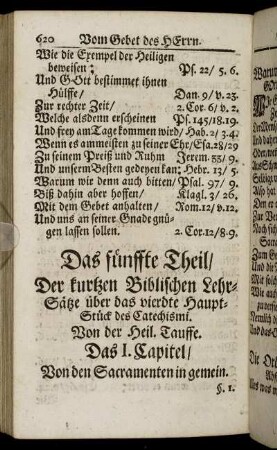 620 Vom Gebet des HErrn.
Wie die Exempel der Heiligen
beweisen: Ps. 22/ 5. 6.
Und GOtt bestimmet ihnen
Hülffe/ Dan. 9/ v. 23.
Zur rechter Zeit/ 2. Cor. 6/ v. 2.
Welche alsdenn erscheinen Ps. 145/18.19.
Und frey am Tage kommen wird/ Hab. 2/ 3.4.
Wenn es am meisten zu seiner Ehr/ Esa. 28/29
Zu seinem Preiß und Ruhm Jerem. 33/ 9.
Und unserm Besten gedeyen kan: Hebr. 13/ 5.
Warum wir denn auch bitten/ Psal. 97/ 9.
Biß dahin aber hoffen/ Klagl. 3/ 26.
Mit dem Gebet anhalten/ Rom. 12/ v. 12.
Und uns an seiner Gnade gnü-
gen lassen sollen. 2. Cor. 12/8-9.
Das fünffte Theil/
Der kurtzen Biblischen Lehr-
Sätze über das vierdte Haupt-
Stück des Catechismi.
Von der Heil. Tauffe.
Das I. Capitel/
Von den Sacramenten in gemein.
§. 1.